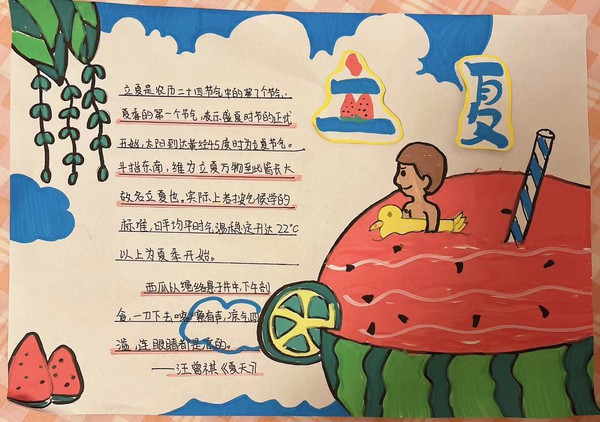 立夏
立夏是农历二十四节气中的第7个节气，
夏季的第一个节气，表示盛夏时节的正式
开始，太阳到达黄经45度时为立夏节气。
斗指东南，维为立夏万物至此皆长大
故名立夏也。实际上老按气候学的
标准，日平均平时气温稳定升达22℃
以上为夏季开始。
西瓜以绳络悬于井中，下午剖
食，一刀下去，咔嚓有声，凉气四
溢，连眼睛都是凉的。
——汪曾祺《夏天》